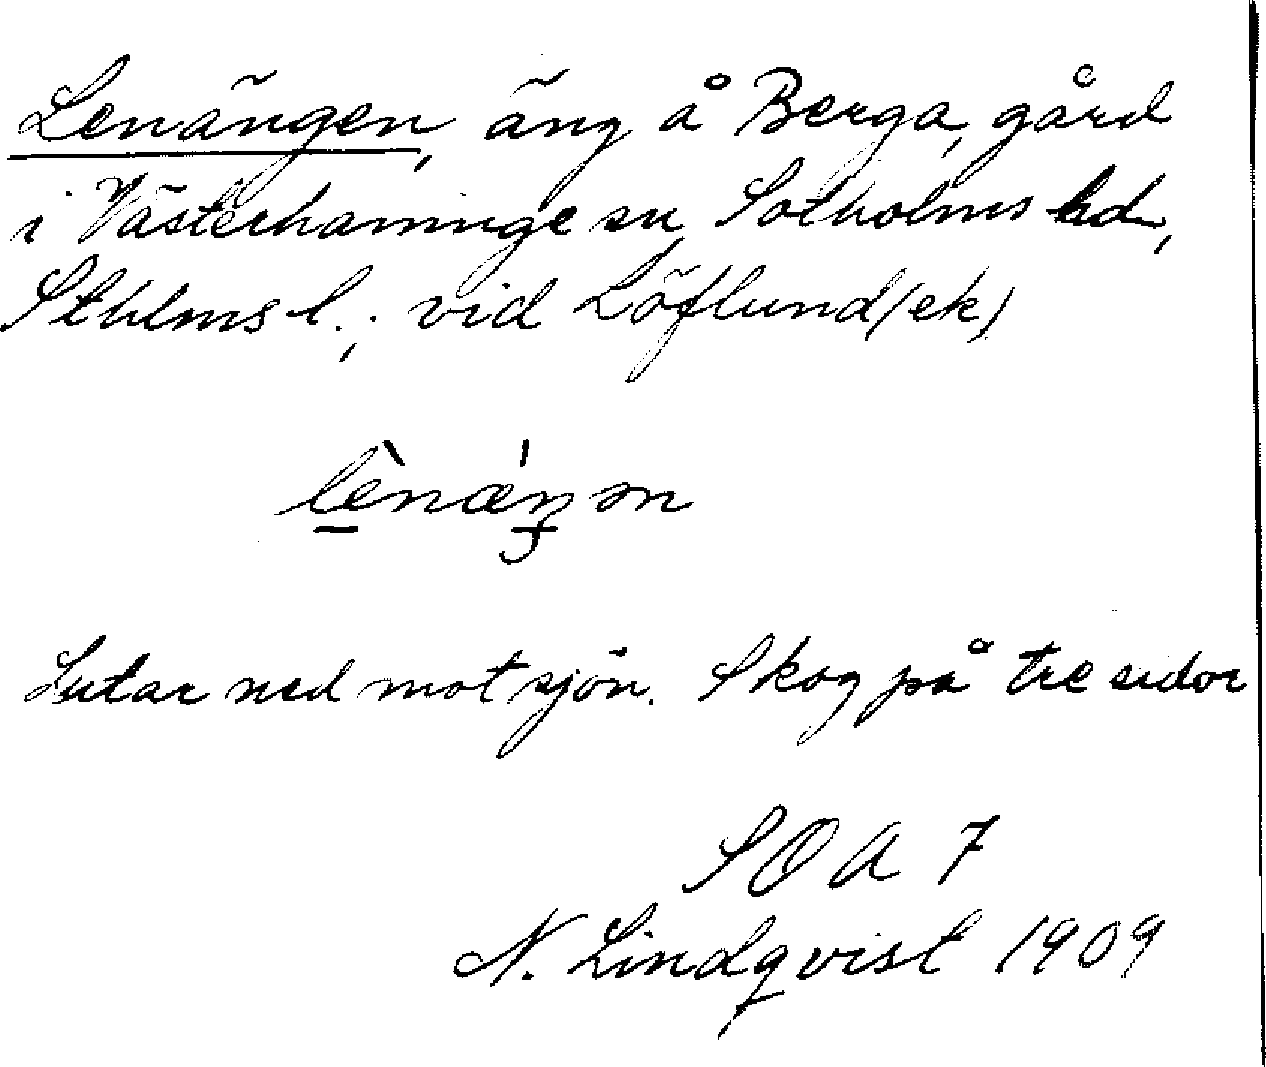 Lenängen, äng å Berga, gård
i Västerhaninge sn, Sotholms hd,
Sthlms l.; vid Löflund(ek)
lènæ̀ŋən
Lutar ned mot sjön. Skog på tre sidor
SOA 7
N. Lindqvist 1909